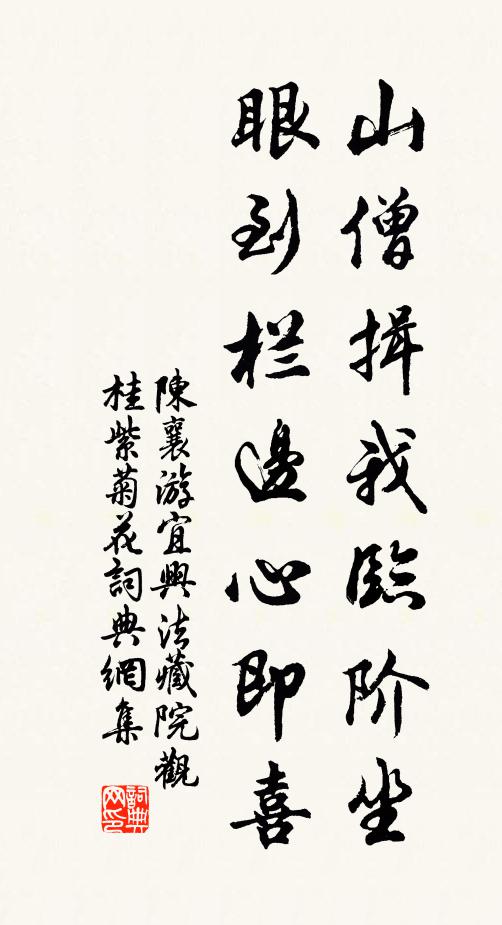 山僧揖我臨阶坐
眼到栏邊心即喜
陳襄游宜興法藏院觀
桂紫菊花詞典網集
詞典網印